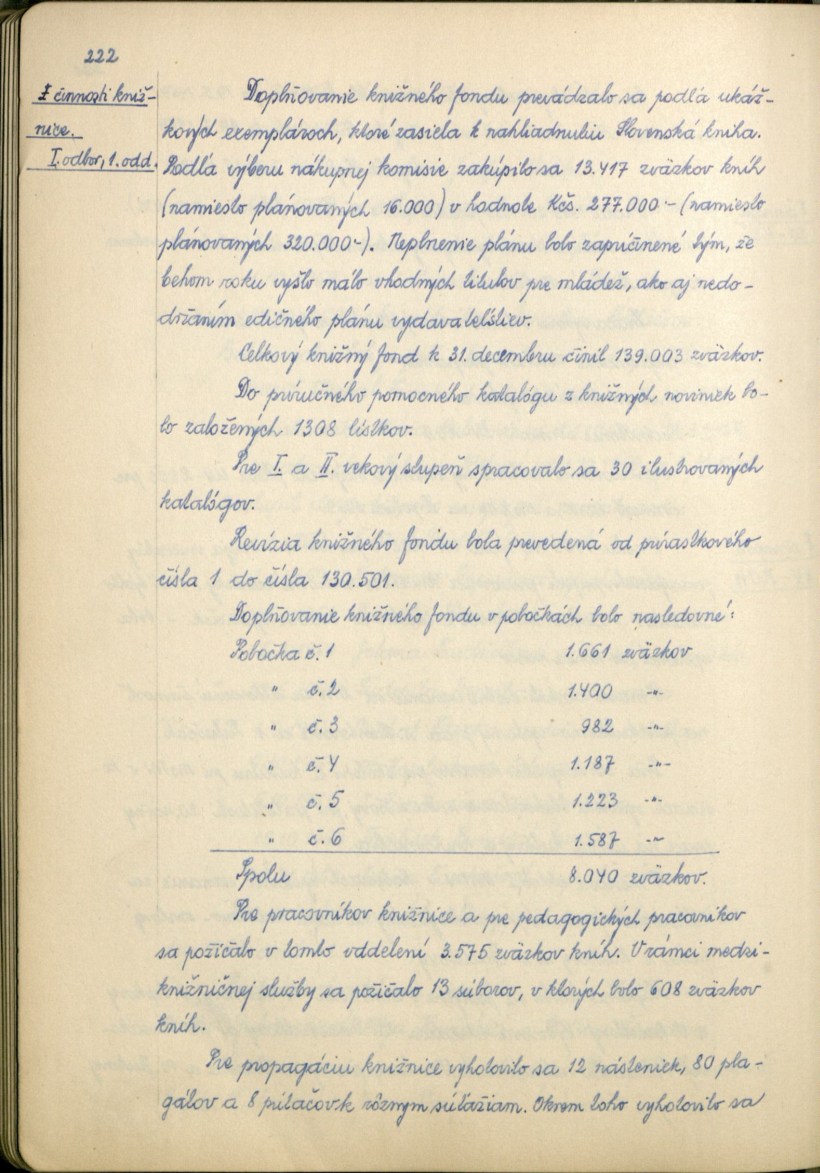 222
Z činnosti kniž-
nice.
I. odbor, 1. odd.
Doplňovanie knižného fondu prevádzalo sa podľa ukáž-
kových exemplároch, ktoré zasiela k nahliadnutiu Slovenská kniha.
Podľa výberu nákupnej komisie zakúpilo sa 13.417 zväzkov kníh
(namiesto plánovaných 16.000) v hodnote Kčs. 277.000 - (namiesto
plánovaných 320.000-). Neplnenie plánu bolo zapríčinené tým, že
behom roku vyšlo málo vhodných titulov pre mládež, ako aj nedo-
držaním edičného plánu vydavateľstiev.
Celkový knižný fond k 31. decembru činil 139.003 zväzkov.
Do príručného pomocného katalógu z knižných noviniek bo-
lo založených 1308 lístkov.
Pre I. a II. vekový stupeň spracovalo sa 30 ilustrovaných
katalógov.
Revízia knižného fondu bola prevedená od prírastkového
čísla 1 do čísla 130.501.
Doplňovanie knižného fondu v pobočkách bolo nasledovné:
Pobočka č. 1 1.661 zväzkov
" č. 2 1.400 -"-
" č. 3 982 -"-
" č. 4 1.187 -"-
" č. 5 1.223 -"-
" č. 6 1.587 -"-
Spolu 8.040 zväzkov.
Pre pracovníkov knižnice a pre pedagogických pracovníkov
sa požičalo v tomto oddelení 3.575 zväzkov kníh. V rámci medzi-
knižničnej služby sa požičalo 13 súborov, v ktorých bolo 608 zväzkov
kníh.
Pre propagáciu knižnice vyhotovilo sa 12 násteniek, 80 pla-
gátov a 8 pútačov k rôznym súťažiam. Okrem toho vyhotovilo sa